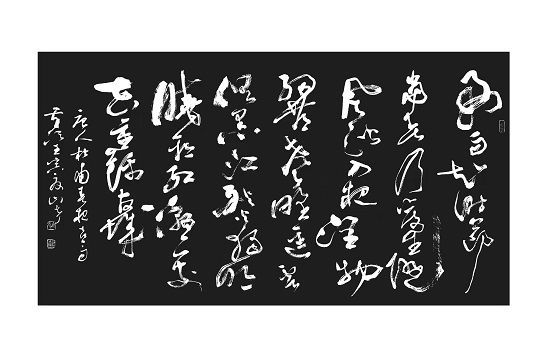 好雨知时節
當春乃發生随
風潜入夜潤物
細無聲野徑雲
俱黑江船火獨明
曉看紅濕處
花重錦官城
唐人杜甫春夜喜雨